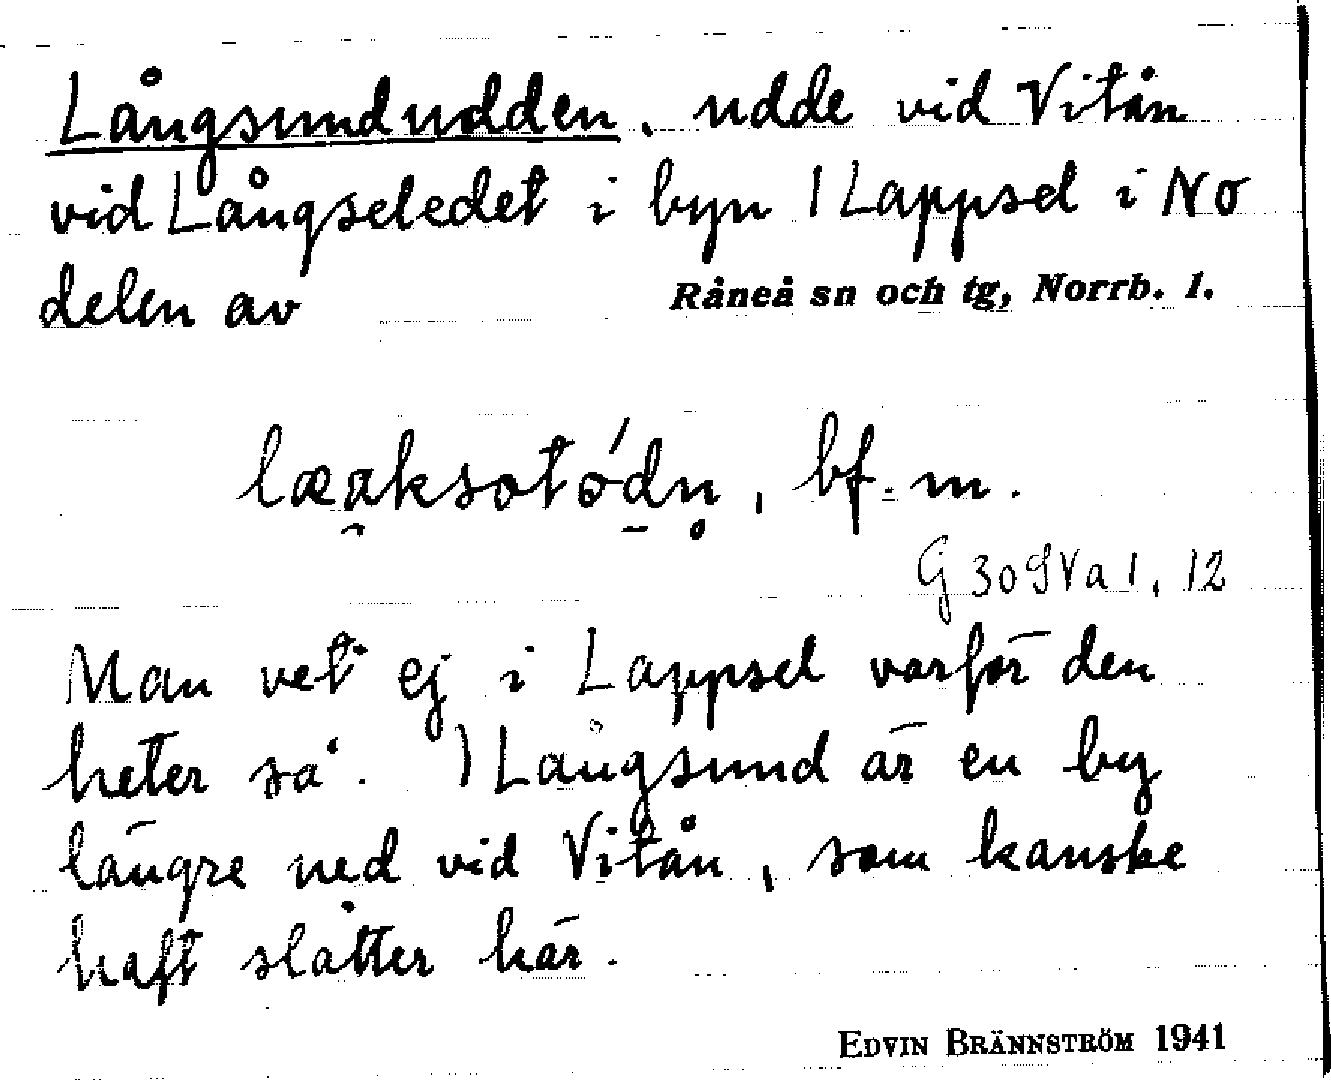 Långsundudden, udde vid Vitån
vid Långseledet i byn 1 Lappsel i NO
delen av Råneå sn och tg, Norrb. l.
bf. m.
G 30 SVa 1, 12
Man vet ej i Lappsel varför den
heter så. 1 Långsund är en by
längre ned vid Vitån, som kanske
haft slåtter här.
EDVIN BRÄNNSTRÖM 1941